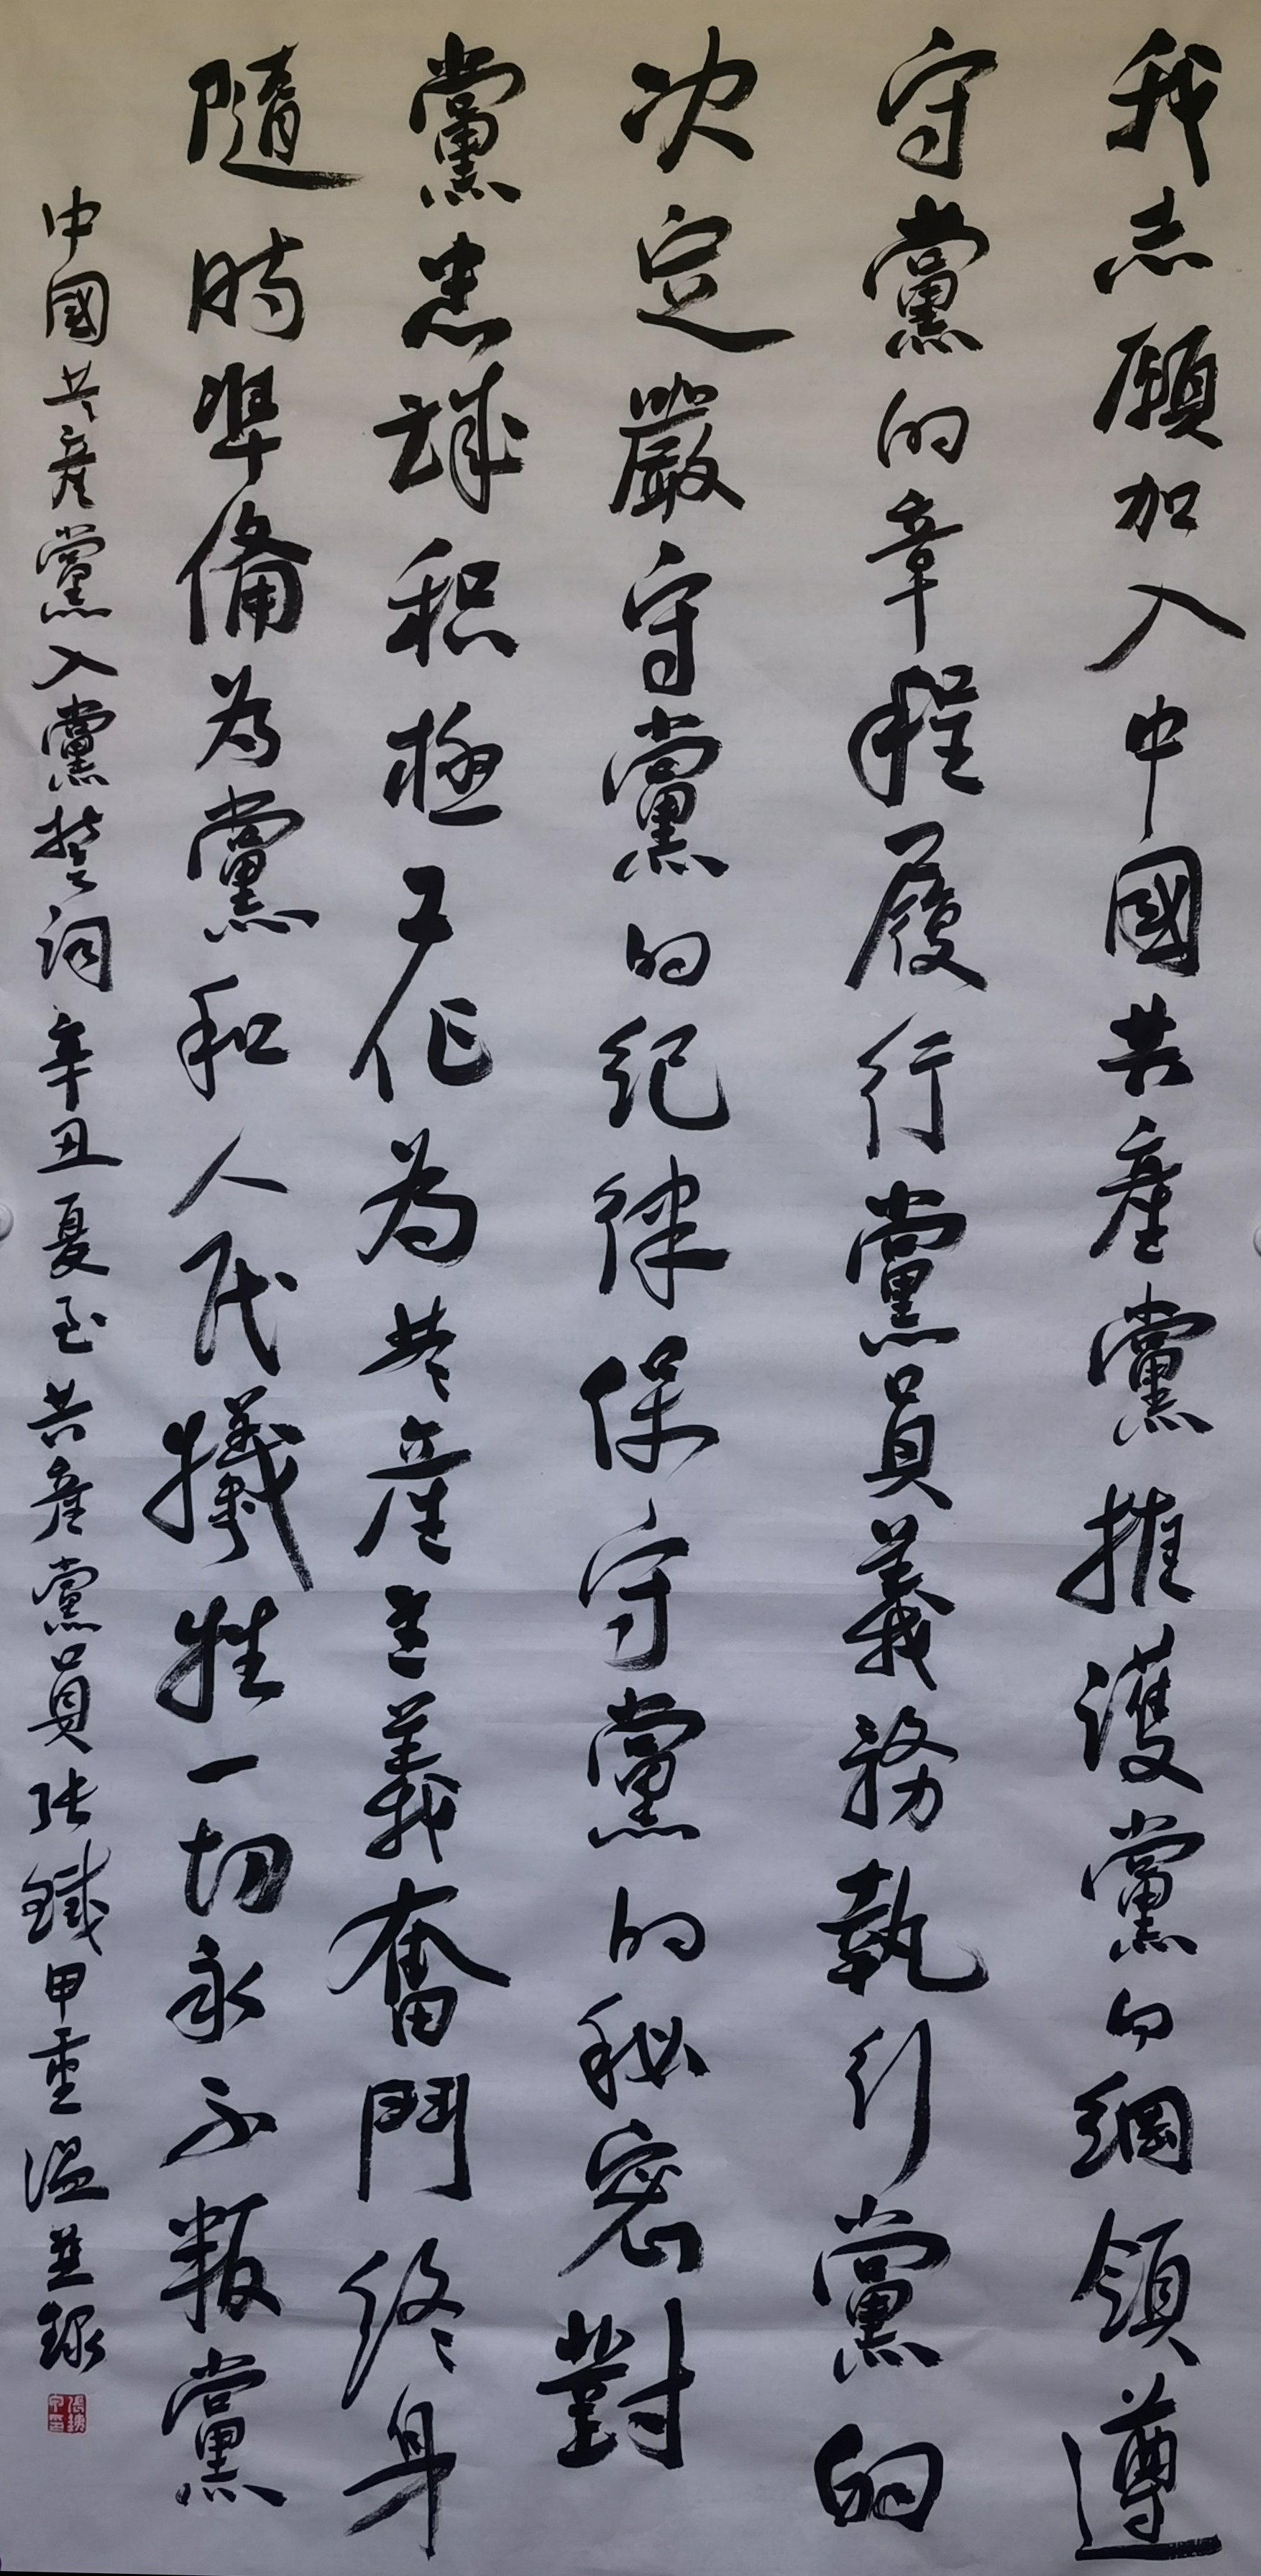 我志願加入中國共產黨推護黨的綱領遵
守黨的章程履行黨員義務執行黨的
決定嚴守黨的紀律保守黨的秘密對
黨忠誠积極工作為共產主義奮鬥終身
隨時準備為黨和人民犧牲一切永不叛黨
中國共產黨入黨誓词辛丑夏至共產黨員张鐵甲重溫並録